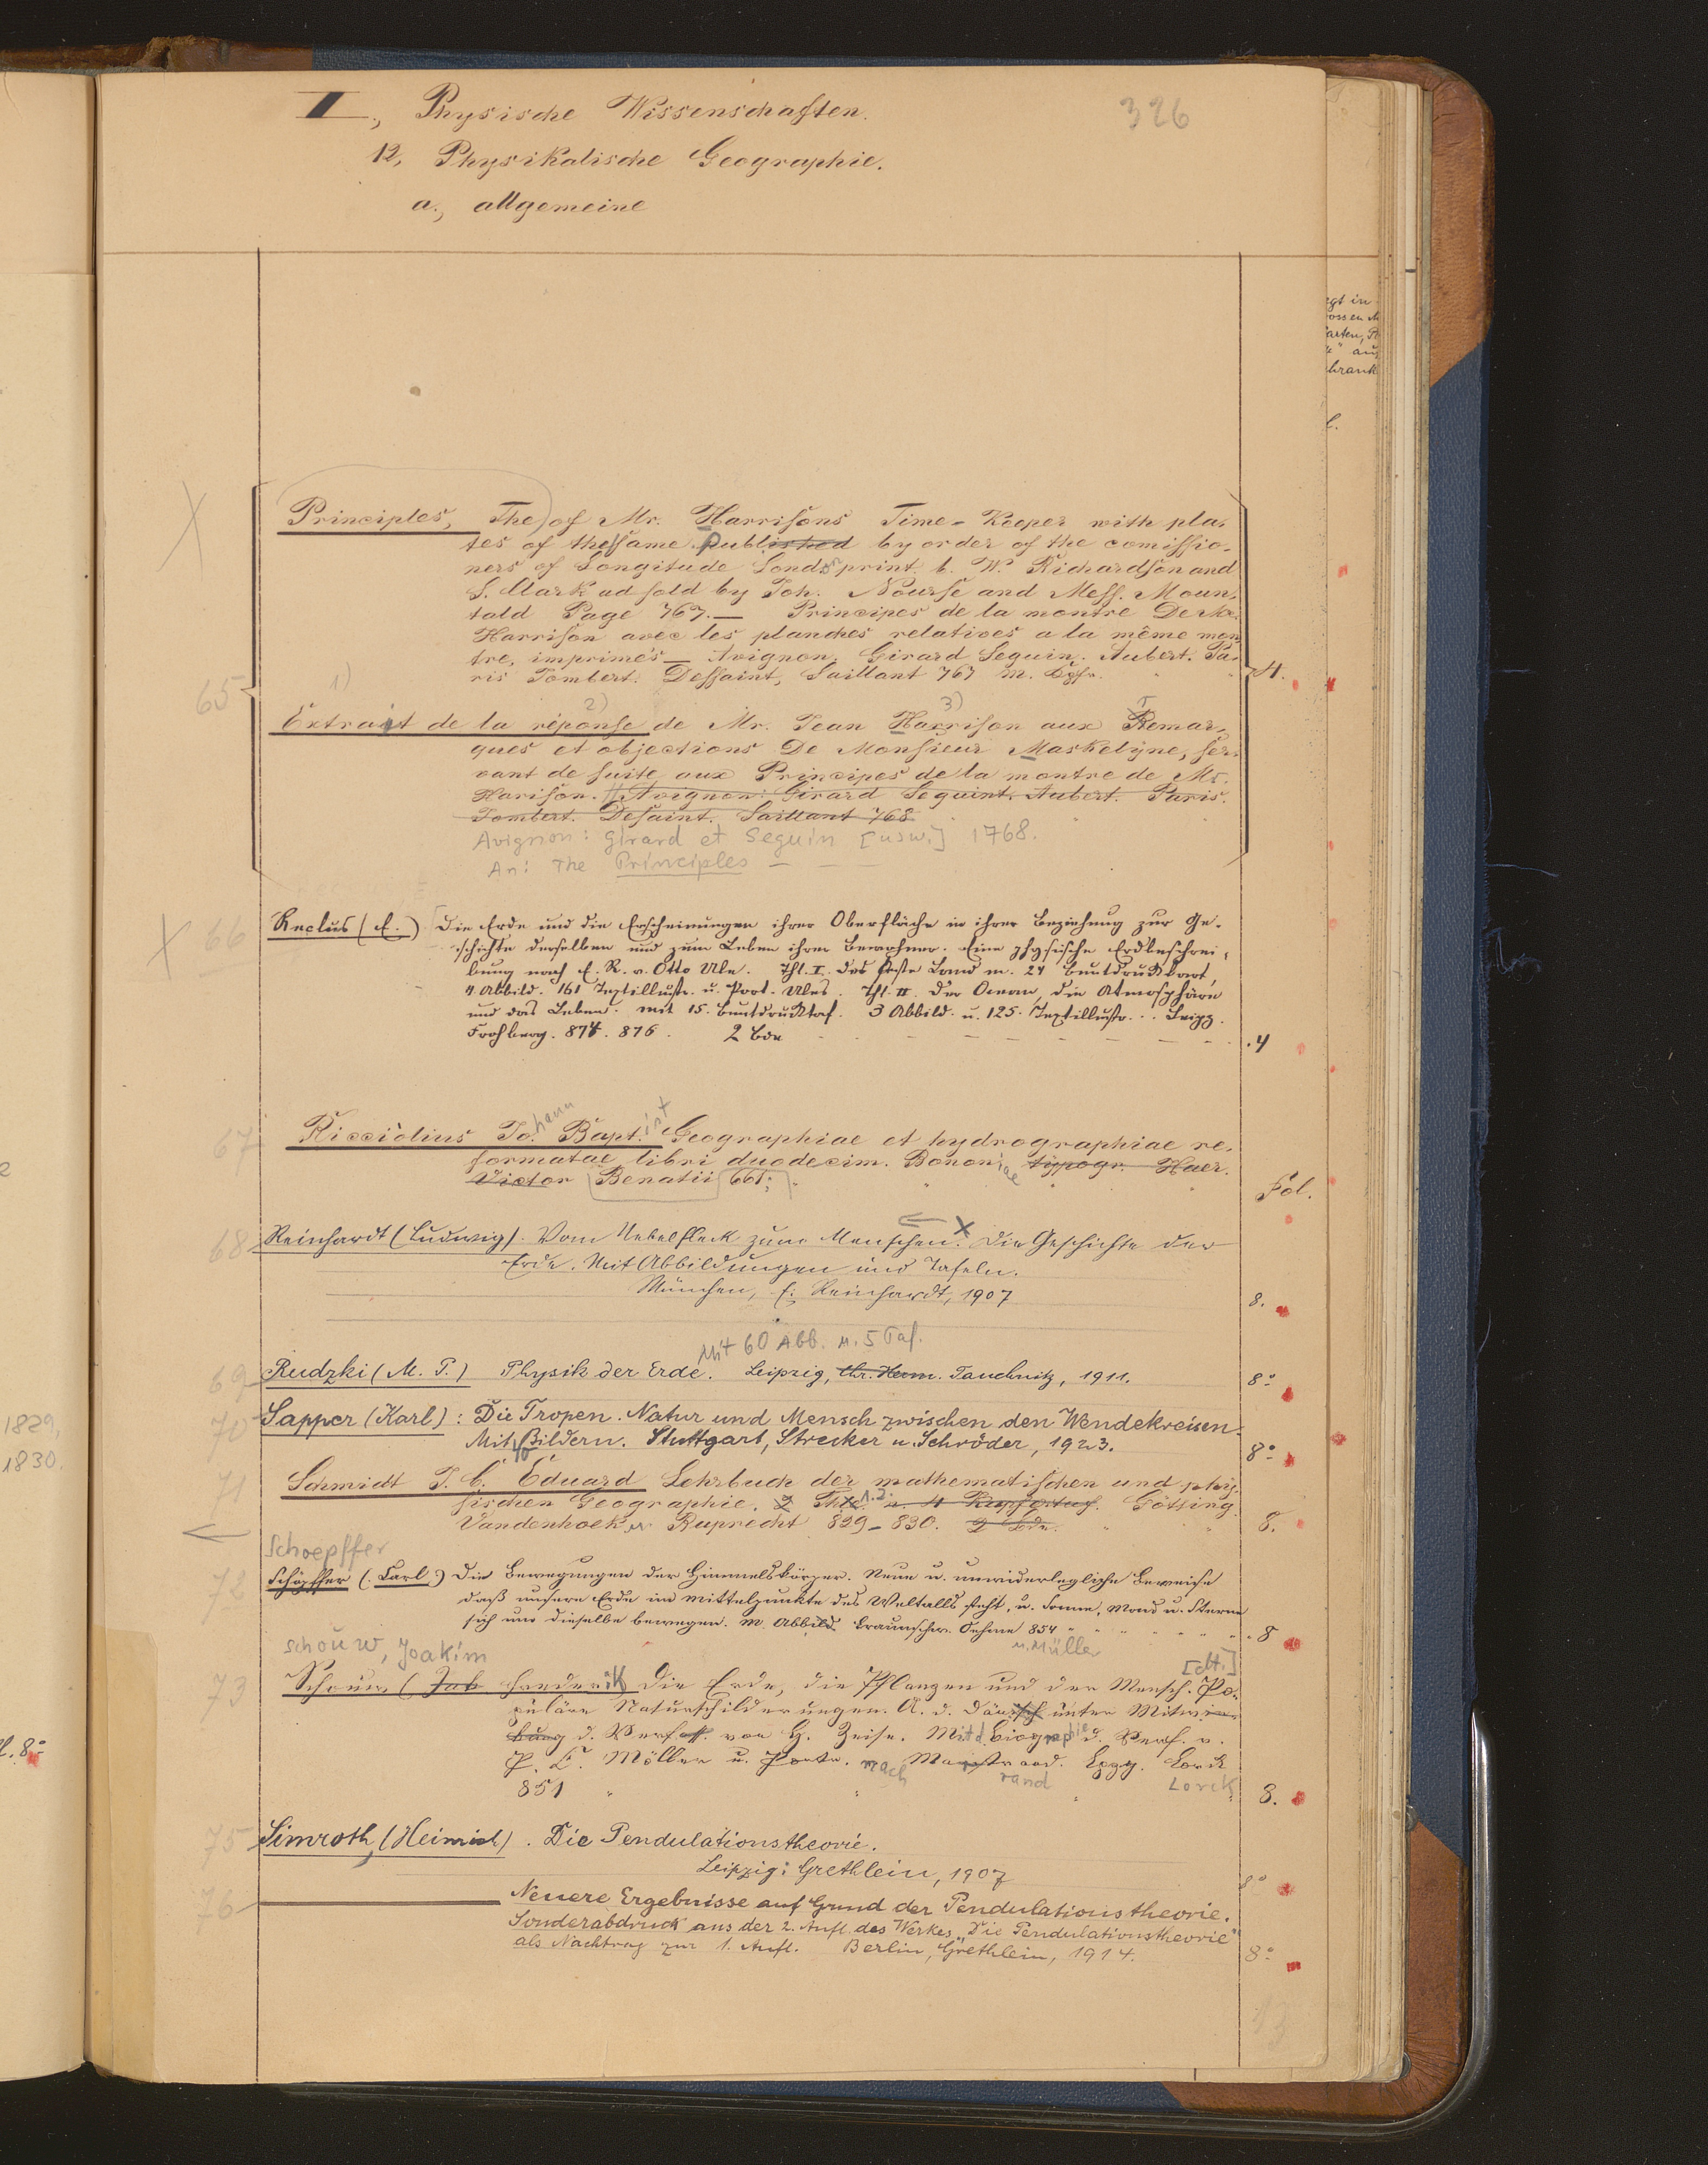 326
II., Physische Wissenschaften.
12, Physikalische Geographie.
a., allgemeine
Principles, The) of Mr. Harrisons Time-Keeper with pla-
tes of the same published by order of the comissio-
ners of Longitude Lond print. b. W. Richardson and
S. Clark ad sold by Joh. Nourse and Mess. Moun-
tald Page 767. — Principes de la montre De Mr.
Harrison avec les planches relatives a la même mon-
tre, imprimés — Avignon. Girard Seguin. Aubert. Pa-
ris Jombert. Dessaint, Saillant 767 m. Kpfr.
4.
65
1) 2) 3)
Extrait de la réponse de Mr. Jean Harrison aux Remar-
ques et objections De Monsieur Maskelyne, ser-
vant de suite aux Principes de la montre de Mr.
Harison. Avignon: Girard Seguint. Aubert. Paris.
Jombert. Desaint. Saillant 768
Avignon: Girard et Seguin [usw.] 1768.
An: The Principles — — —
66 Reclus (E.) Die Erde und die Erscheinungen ihrer Oberfläche in ihrer Beziehung zur Ge-
schichte derselben und zum Leben ihrer Bewohner. Eine physische Erdbeschrei-
bung nach E. R. v. Otto Ule. Thl. I. das feste Land m. 27 Buntdruckkart,
4 Abbild. 161 Textillustr. u. Port. Ules. Thl. II. Der Ocean, die Atmosphäre
und das Leben. mit 15. Buntdrucktaf. 3 Abbild. u. 125. Textillustr. .. Leipz.
Frohberg. 874. 876. 2 Bde
4
67 Ricciolius Jo.hann Bapt.ist Geographiae et hydrographiae re-
formatae libri duodecim. Bononiae typogr. Haer.
Victor Benatii 661;
Fol.
68 Reinhardt (Ludwig). Vom Nebelfleck zum Menschen. Die Geschichte der
Erde. Mit Abbildungen und Tafeln.
München, E. Reinhardt, 1907
8.
Mit 60 Abb. u. 5 Taf.
69 Rudzki (M. P.) Physik der Erde. Leipzig, Chr. Herm. Tauchnitz, 1911.
8°
70 Sapper (Karl): Die Tropen. Natur und Mensch zwischen den Wendekreisen.
Mit 40 Bildern. Stuttgart, Strecker u. Schröder, 1923.
8°
71 Schmidt J. C. Eduard Lehrbuch der mathematischen und phy-
sischen Geographie. 2 Thle 1.2. u. 4 Kupfertaf. Götting.
Vandenhoek u Ruprecht 829-830. 2 Bde.
8.
Schoepffer
72 Schöpffer (Carl) Die Bewegungen der Himmelskörper. Neue u. unwiderlegliche Beweise
daß unsere Erde im Mittelpunkte des Weltalls steht, u. Sonne, Mond u. Sterne
sich um dieselbe bewegen. M. Abbild. Braunschw. Oehme 854
u. Müller
8
Schouw, Joakim
[dt.]
73 Schouw (Joh Frederik Die Erde, die Pflanzen und der Mensch. Po-
puläre Naturschilderungen. A. d. Dänisch unter Mitwir-
kung d. Verfass. von H. Zeise. Mit d. Biographie d. Verf. v.
P. L. Möller u. Portr. nach Marstrand. Lpzg. Lorck
rand Lorck
851
8.
75 Simroth, (Heinrich). Die Pendulationstheorie.
Leipzig: Grethlein, 1907
8°
76 ——— Neuere Ergebnisse auf Grund der Pendulationstheorie.
Sonderabdruck aus der 2. Aufl. des Werkes „Die Pendulationstheorie"
als Nachtrag zur 1. Aufl. Berlin, Grethlein, 1914.
8°
1829,
1830.